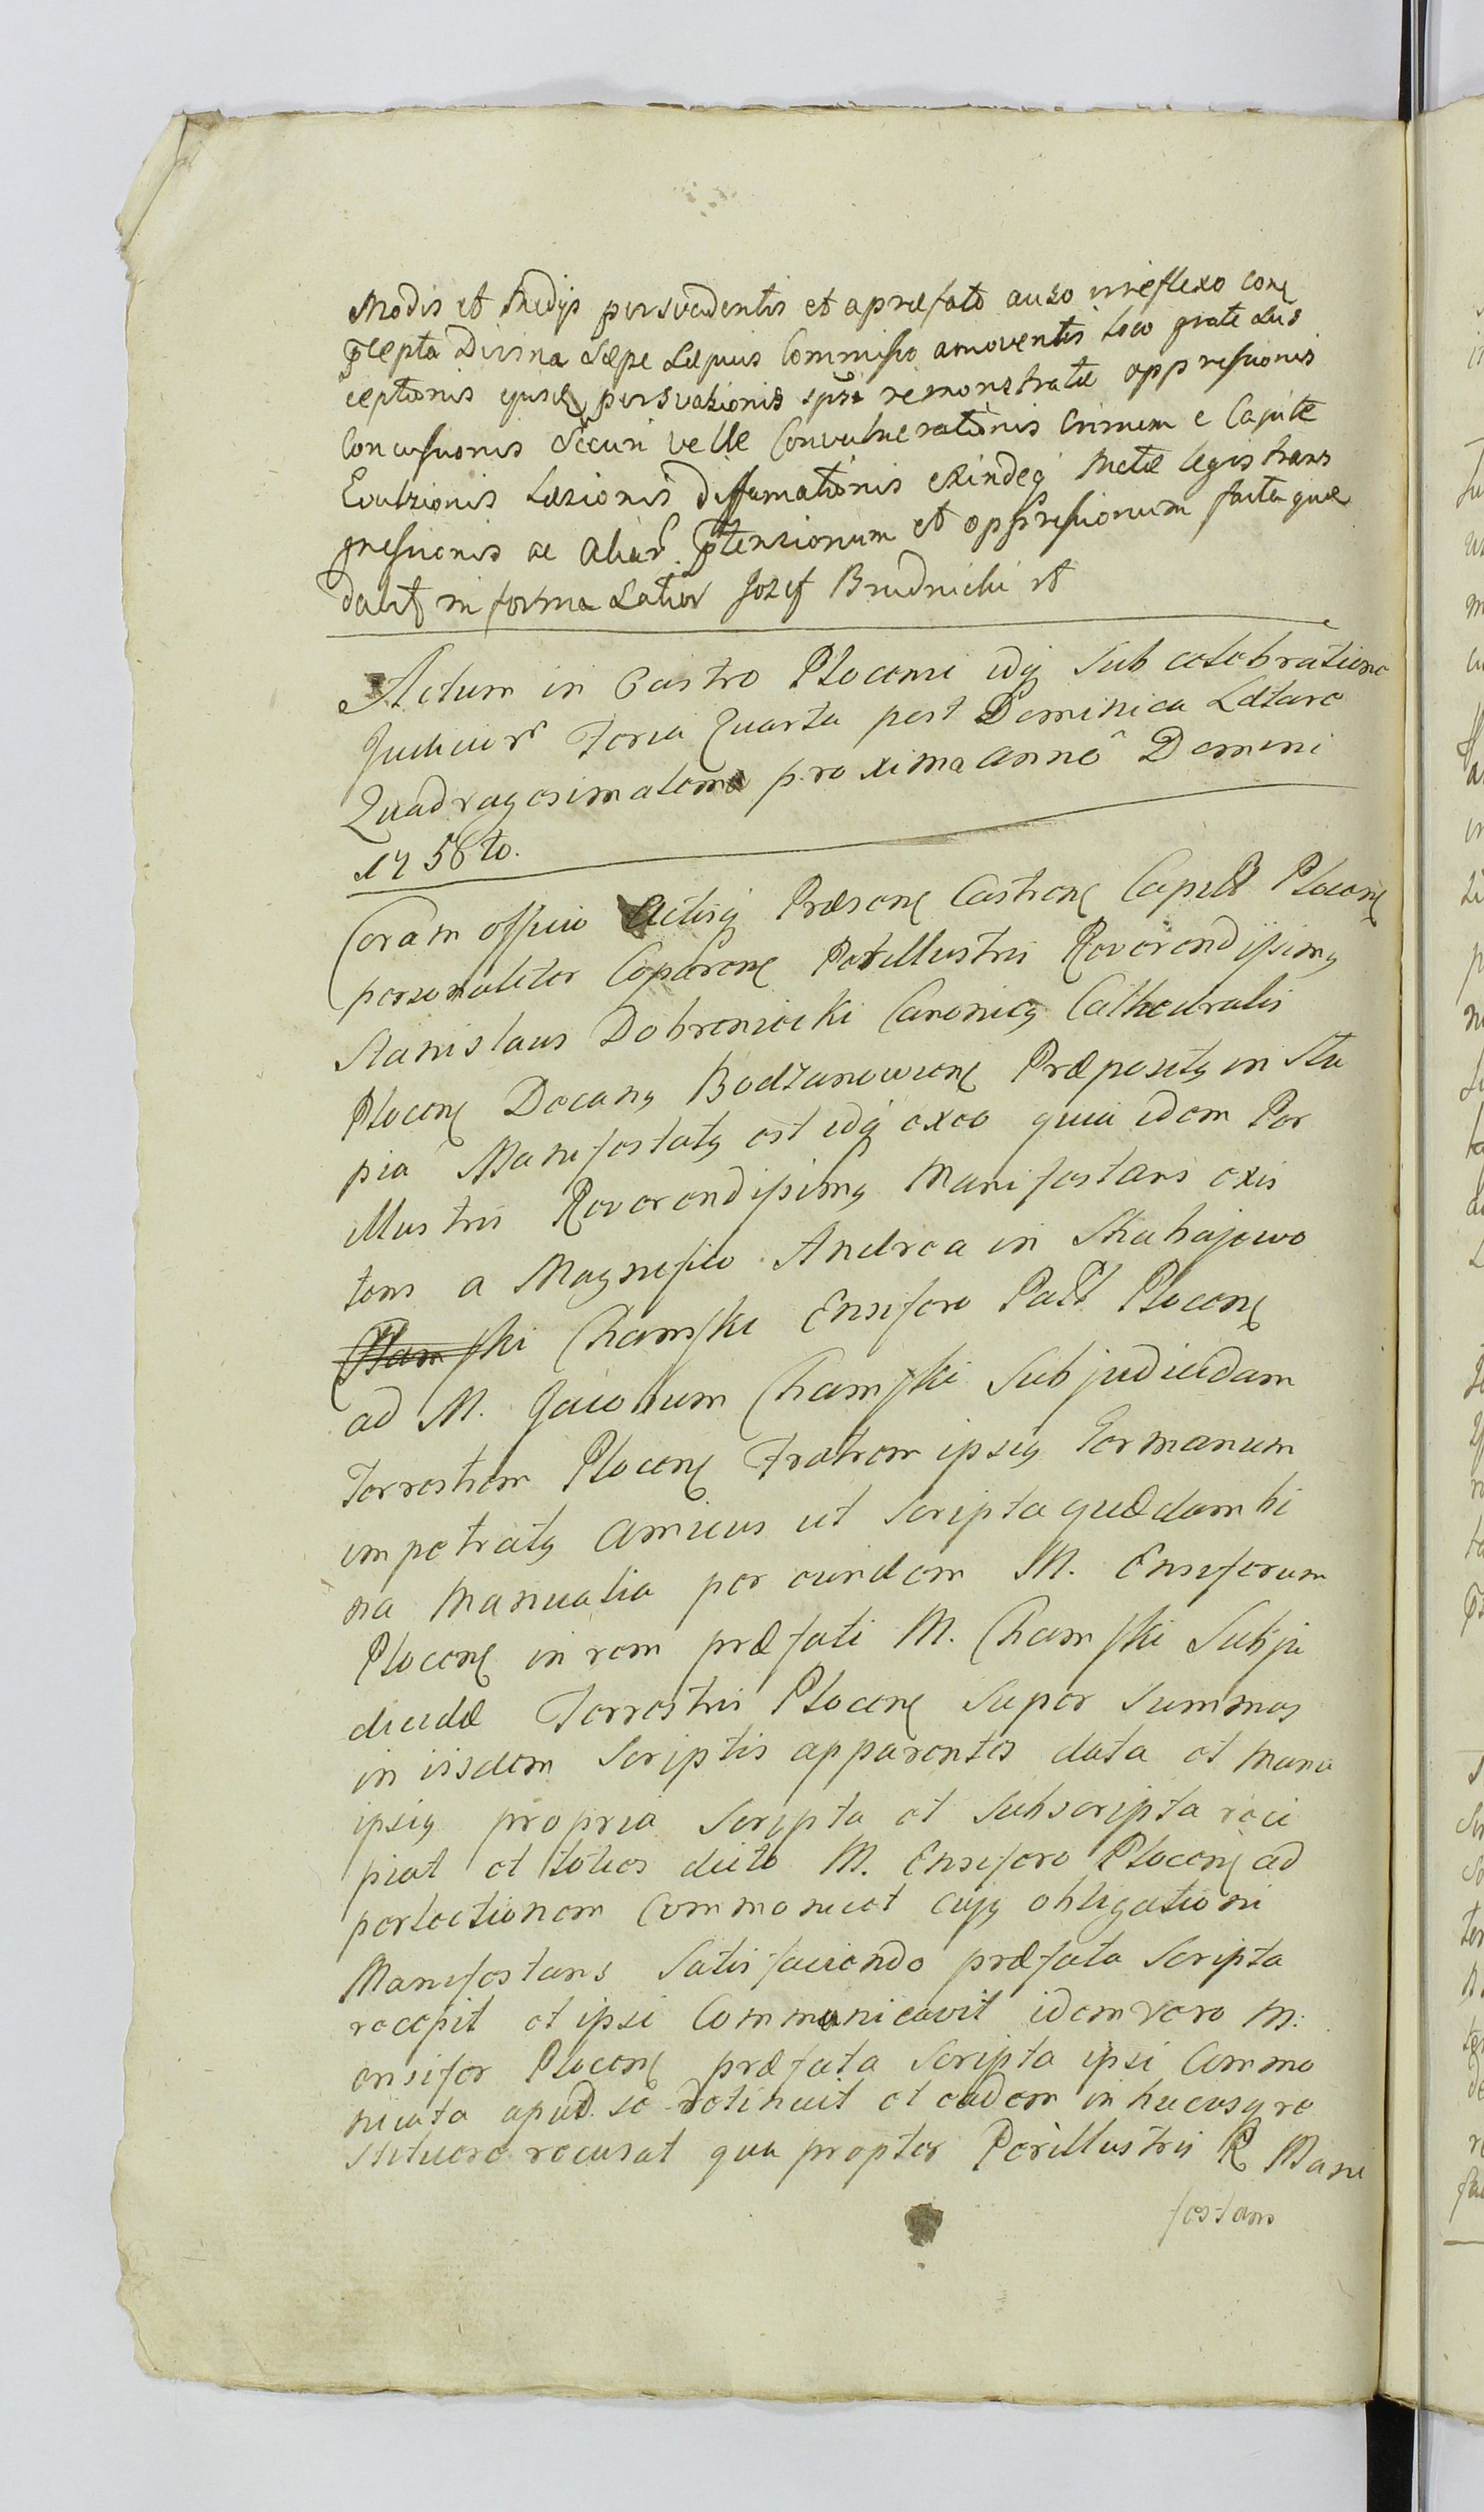 Modis et Medijs persvadentis et a præfato auso irreflexo conę
pcepta Divina Sæpe Sæpius Commisso amoventis loco gratæ Sus
ceptionis ejusdę persvasionis ipsi remonstratæ oppressionis
Concussionis Securi velle Convulnerationis Crinium e Capite
Evulzionis Læsionis diffamationis exindeq Metæ legis trans
gressionis ac Aliar. ptensionum et oppressionum factaque
dabit in forma Latior Jozef Brudnicki rt
Actum in Castro Plocensi idq Sub celebratione
Judicior Feria Quarta post Dominica Lætare
Quadragesimalem proxima annô Domini
1756to.
Coram officio Actisq Præsenę Castrenę Capitl Plocenę
personaliter Coparenę Perillustris Reverendissimꝰ
Stanislaus Dobrzeniecki Canonicꝰ Cathedralis
Plocenę Decanꝰ Bodzanowienę Præpositꝰ in Stu
pia Manifestatꝰ est idq exeo quia idem Per
illustris Reverendissimꝰ Manifestans exis
tens a Magnifico Andrea in Skahajewo
Chamski Chamski Ensifero Pall Plocenę
ad M. Jacobum Chamski Subjudicidam
Terrestrem Plocenę Fratrem ipsiꝰ Germanum
impetratꝰ amicus ut Scripta quædam bi
na Manualia per eundem M. Ensiferum
Plocenę in rem præfati M. Chamski Subju
dicidæ Terrestris Plocenę Super Summas
in iisdem Scriptis apparentes data et manu
ipsiꝰ propria Scripta et Subscripta reci
piat et toties dicto M. Ensifero Plocenę ad
perlectionem Commonicet cujꝰ obligationi
Manifestans Satisfaciendo præfata Scripta
recepit et ipsi Communicavit idem vero M:
ensifer Plocenę præfata Scripta ipsi Commo
nicata apud se detinuit et eadem in hucusq re
stituere recusat qua propter Perillustris R Mani
festans